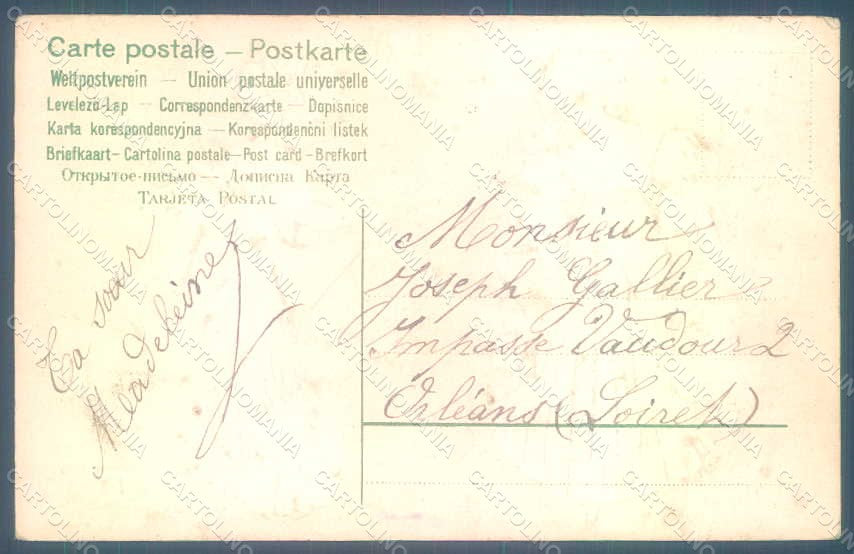 Carte postale – Postkarte
Weltpostverein – Union postale universelle
Levelező-Lap – Correspondenzkarte – Dopisnice
Karta korespondencyjna – Korespondenčni listek
Briefkaart – Cartolina postale – Post card – Brefkort
Открытое-письмо – Дописна Карта
Tarjeta Postal
Ta sœur
Madeleine
Monsieur
Joseph Gallier
Impasse Vaudour 2
Orléans (Loiret)
CARTOLINOMANIA